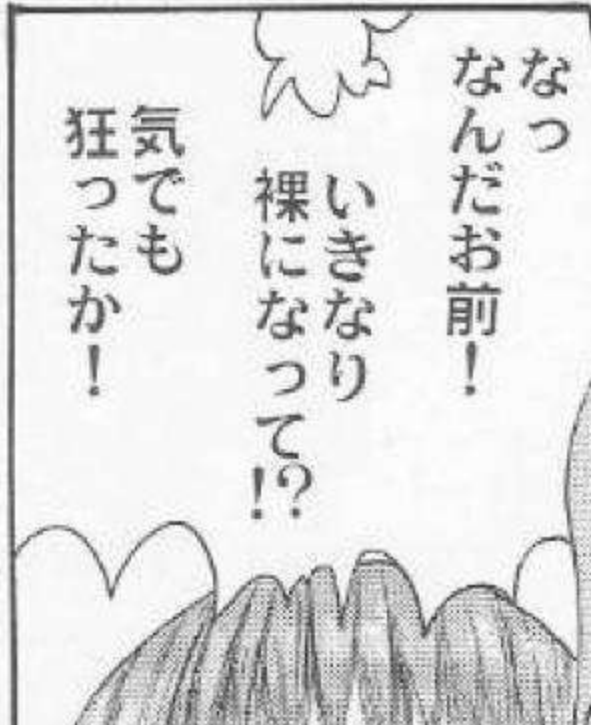 なっ
なんだお前!
いきなり
裸になって!?
気でも
狂ったか!